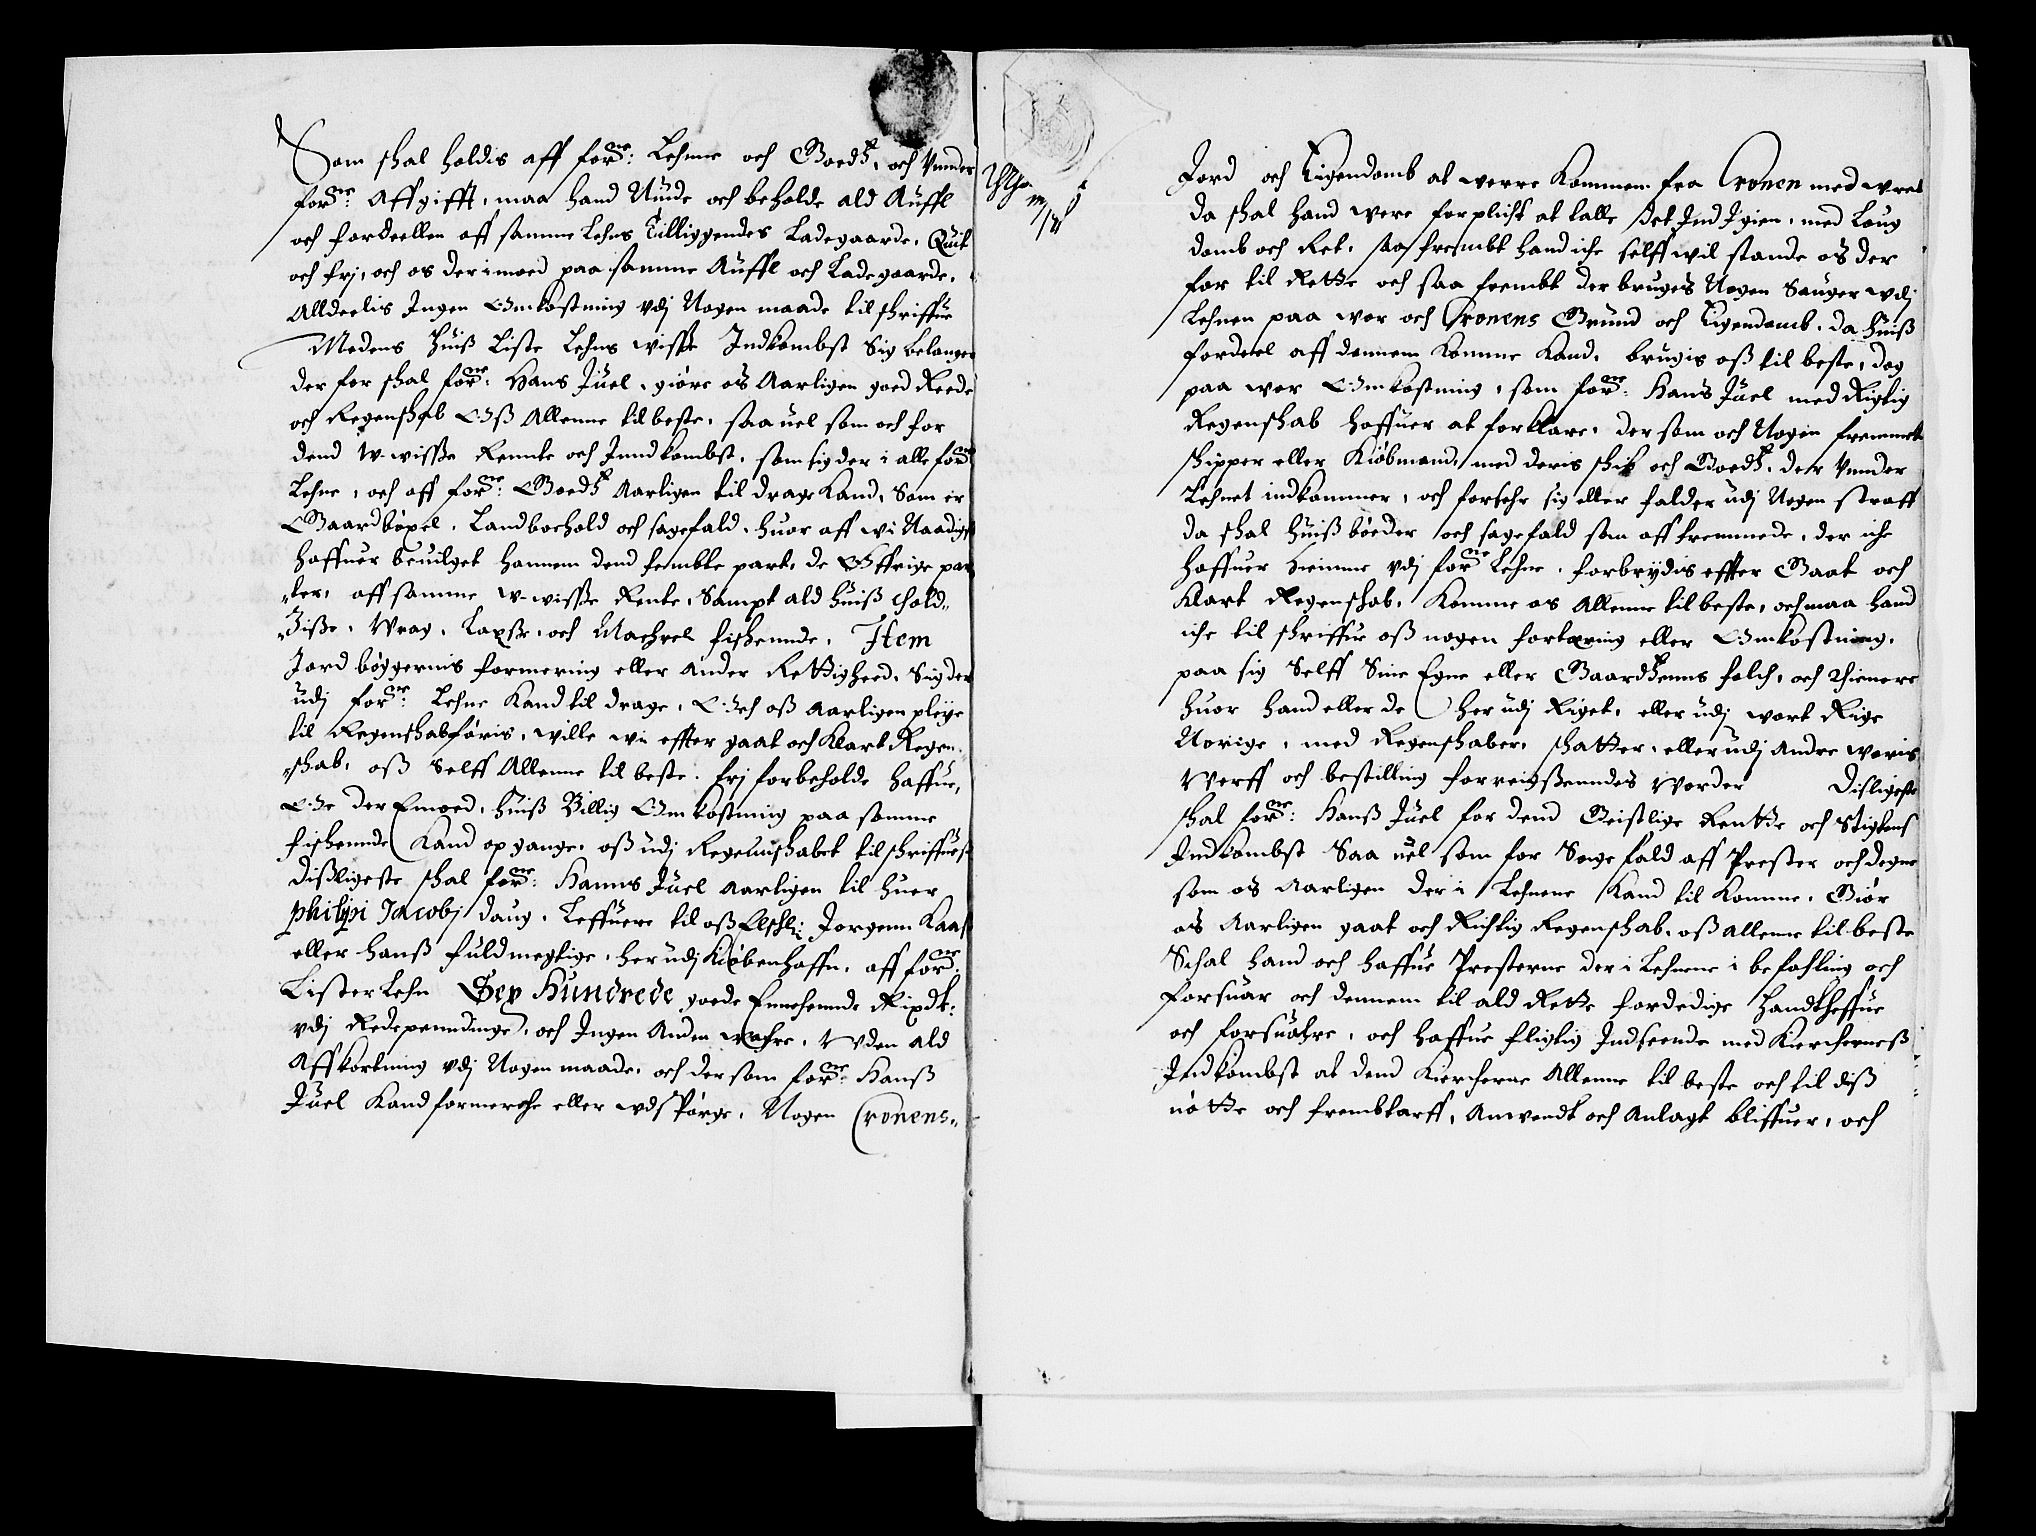 Som skal holdis aff forne: Lehnne och Goeds, och Vnnder
forne: Affgifft, maa hand Niude och beholde ald Auffl
och fordeellen aff samme Lehns tilliggendes Ladegaarde, Quit
och frj, och os der imoed paa samme Auffl och Ladegaarde,
Alldeelis Ingen Omkostning vdj Nogen maade til schriffue
Medens huiß Liste Lehns wisse Indkombst Sig belanger
der for skal forne: Hans Juel, giøre os Aarligen goed Reede
och Regenskab Oß Allenne til beste, saa uel som och for
dend W-wisse Rennte och Inndkombst, som sig der i alle forne
Lehne, och aff forne: Goeds Aarligen til drage Kand, Som er
Gaardbøxel, Landbochold och sagefald, huor aff wi Naadigst
haffuer beuilget hannem dend fembte part, de Øffrige par
ter, aff samme w-wisse Rente, Sampt ald huiß Told,,
Zise, Wrag, Laxse, och Machrel fischennde, Item
Jord bøggernis formering eller ander Rettigheed, Sig der
udj forne: Lehne Kand til drage, Och oß Aarligen pleye
til Regenskab føris, wille wi effter gaat och Klart Regen
skab, oß Selff Allenne til beste, frj forbeholde haffue,
Och der Emoed, huiß Billig Omkostning paa samme
fischennde Kand opgange, oß udj Regennskabet til schriffues
dißligeste skal forne: Hanns Juel Aarligen til huer
Philipi Jacobj daug, Leffuere til oß Elschl: Jørgenn Kaas
eller hanß fuldmegtige, her udj Kiøbenhaffn, aff forne:
Lister Lehn Sex Hundrede goede Ennchennde Rixdlr:
vdj Rede penndinge, och Ingen Anden wahre, Uden ald
Affkortning vdj Nogen maade, och der som forne: Hanß
Juel Kand formerche eller vdspørge, Nogen Cronens,,
Jord och Eigendomb at werre Kommen fra Cronen med wret
da skal hand were forplicht at talle det Ind Igien, med Loug
domb och Ret, saa frembt hand iche selff wil stande os der
for til Rette och saa frembt der bruges Nogen Sauger udj
Lehnen paa wor och Cronens Grund och Eigendomb, da huiß
fordeel aff dennem Komme Kand, brugis oß til beste, dog
paa wor Omkostning, som forne: Hans Juel med Rigtig
Regenskab haffuer at forklare, der som och Nogen fremmet
skipper eller Kiøbmand, med deris skib och Goeds, der Vnnder
Lehnet indkommer, och forsehr sig eller falder udj Nogen straff
da skal huiß bøeder och sagefald som aff fremmede, der iche
haffuer hieimme vdj forne Lehne, forbrydis effter Gaat och
Klart Regenskab, Komme os Allenne til beste, och maa hand
iche til schriffue oß nogen fortæring eller Omkostning,
paa sig Selff Sine Egne eller Gaardsenns folch, och thienere
huor hand eller de her udj Riget, eller udj wort Rige
Norige, med Regenskaber, skatter, eller udj andre woris
Werff och bestilling forreigßenndes Worder Disligeste
skal forne: Hanß Juel for dend Geistlige Rentte och Stigtens
Indkombst Saa uel som for Sage fald aff Prester och degne
som os Aarligen der i Lehnene Kand til Komme, Giør
os Aarligen gaat och Richtig Regenskab, oß allenne til beste
Schal hand och haffue Presterne der i Lehnene i befahling och
forsuar och dennem til ald Rette fordedige Handtheffue
och forsuahre, och haffue fligtig Indseende med Kiercherneß
Indkombst at dend Kiercherne Allenne til beste och til diß
nøtte och frembtarff, Anwendt och Anlagt bliffuer, och